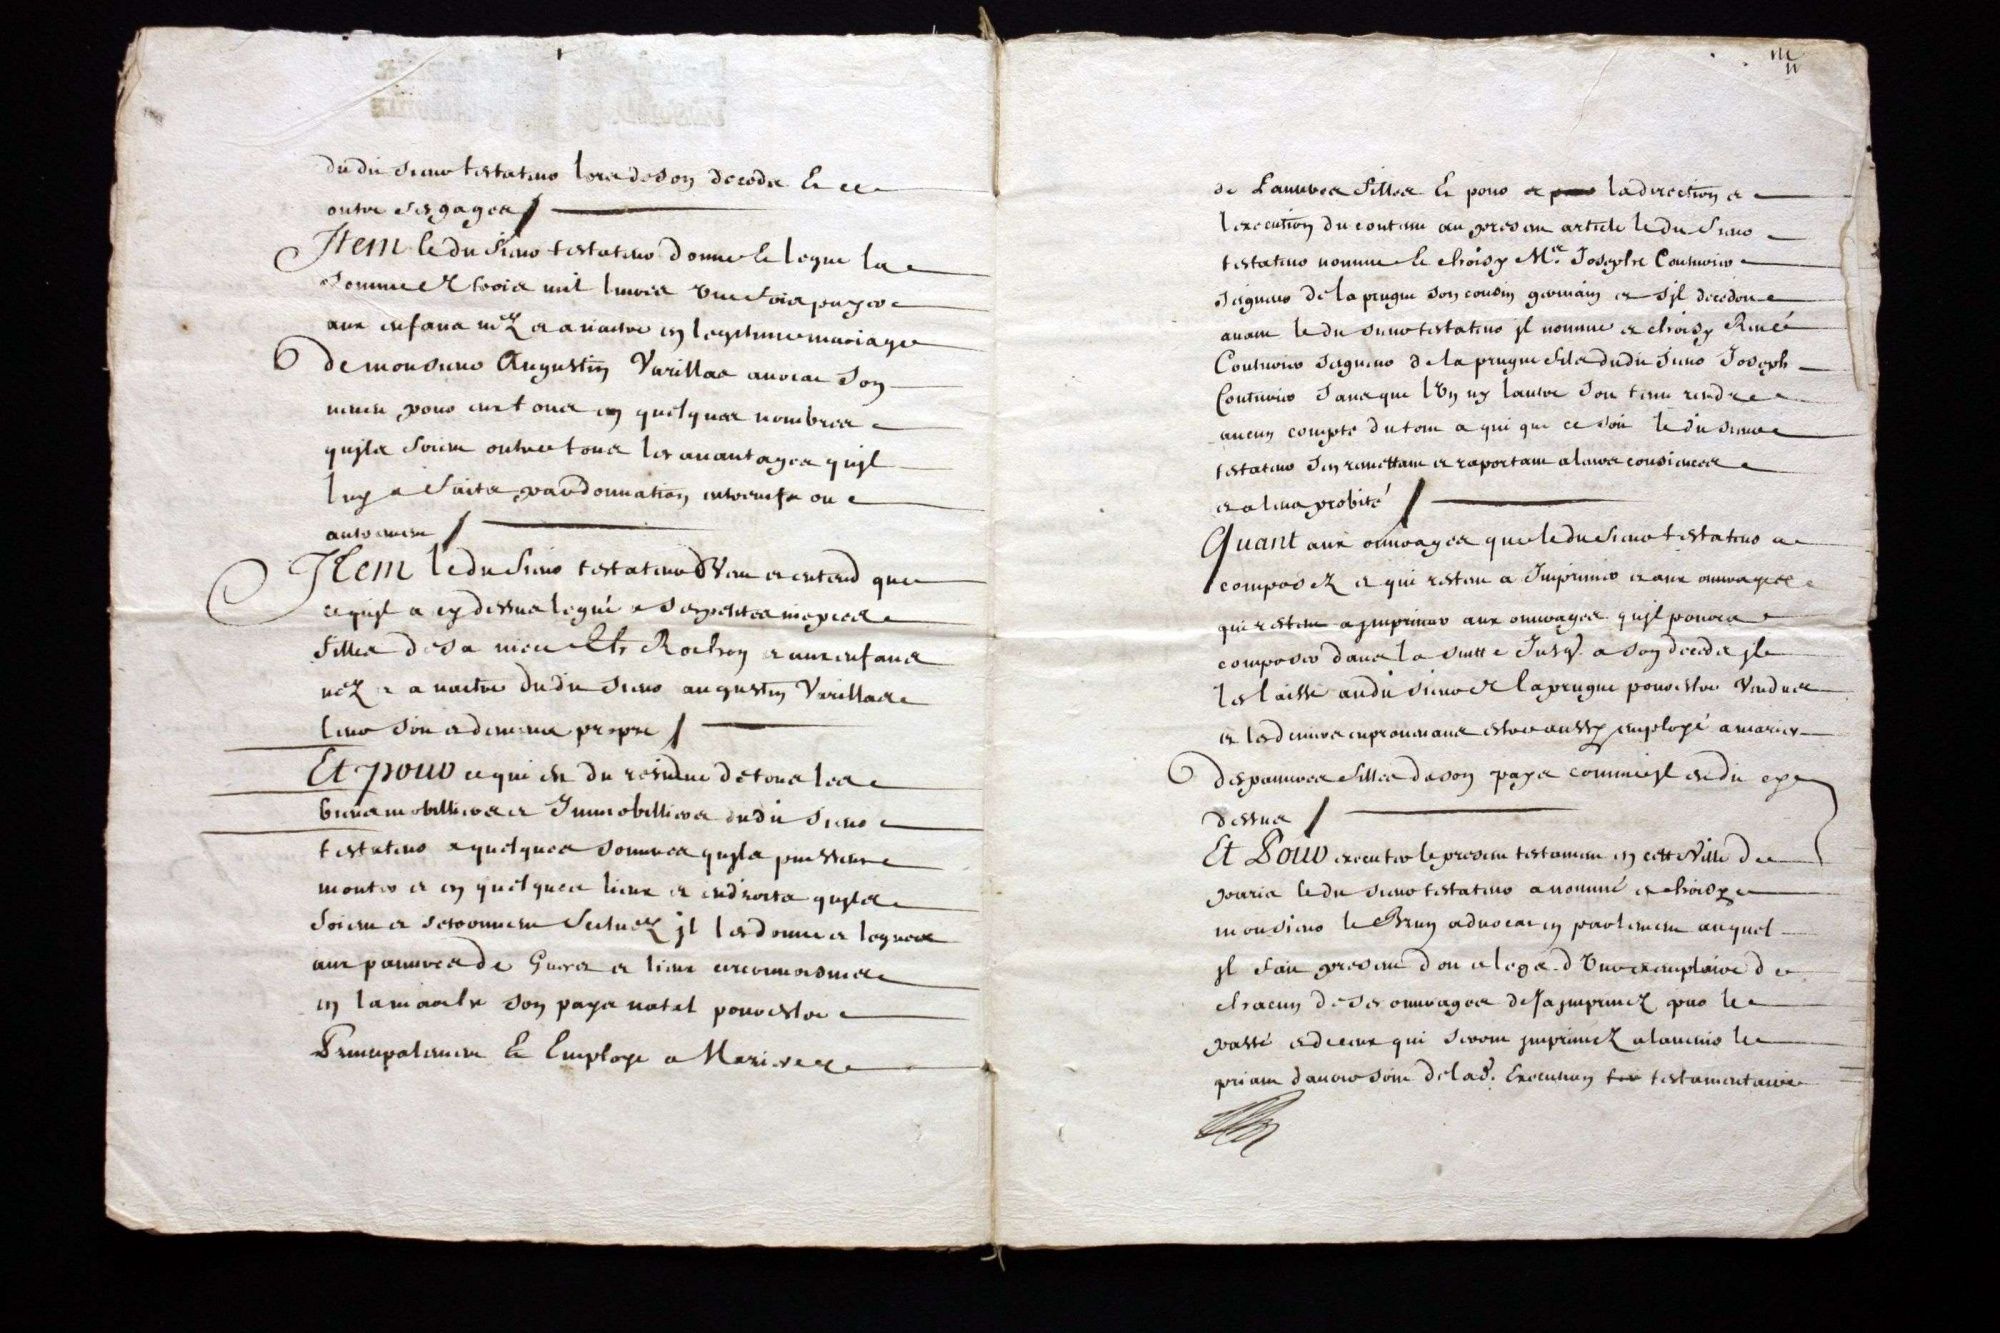 dudit sieur testateur lors de son deceds Et ce
outre ses gages /
Item ledit sieur testateur donne Et legue la
somme de trois mil livres une fois payer
aux enfans nez et a naitre en legitime mariage
de monsieur Augustin Varillas avocat son
neveu pour eux tous en quelques nombres
quils soient outre tous les avantages quil
luy a faits par donnation entre vifs ou
autrement /
Item ledit sieur testateur Veut et entend que
ce quil a cy dessus legué a ses petites niepces
filles de sa niece Rochon et aux enfans
nez et a naitre dudit sieur augustin Varillas
leur soit et demeure propre /
Et pour ce qui est du residue de tous les
biens mobilliers et Immobilliers dudit sieur
testateur a quelques sommes quils puissent
monter et en quelques lieux et endroits quils
soient et se trouvent scituez il les donne et legue
aux pauvres de Gueret et lieux circonvoisins
en la marche son pays natal pour estre
Principalement Et Employe a Marier
de Pauvres filles Et pour et pour la direction et
lexecution du contenu au present article ledit sieur
testateur nomme Et choisy Mr. Josephe Couturier
seigneur de la prugne son cousin germain et sil decedoit
avant ledit sieur testateur il nomme et choisy René
Couturier seigneur de la prugne fils dudit sieur Joseph
Couturier sans que lUn ny lautre soit tenu rendre
aucun compte du tout a qui que ce soit ledit sieur
testateur sen remettant et raportant a leurs consiences
et a leur probité /
Quant aux ouvrages que ledit sieur testateur a
composez et qui restent a Imprimer et aux ouvrages
qui restent a imprimer aux ouvrages quil poura
composer dans la suitte Jusq. a son deceds il
les laisse audit sieur de la prugne pour estre Vendues
et les deniers en provenans estre aussy employé a marier
des pauvres filles de son pays comme il est dit cy
dessus /
Et Pour executer le present testament en cette Ville de
paris ledit sieur testateur a nommé et choisy
monsieur le Brun advocat en parlement auquel
il fait present don et legs d'Un exemplaire de
chacun de ses ouvrages desja imprimez par le
passé et de ceux qui seront imprimez a lavenir le
priant davoir soin de lad. Execution testamentaire